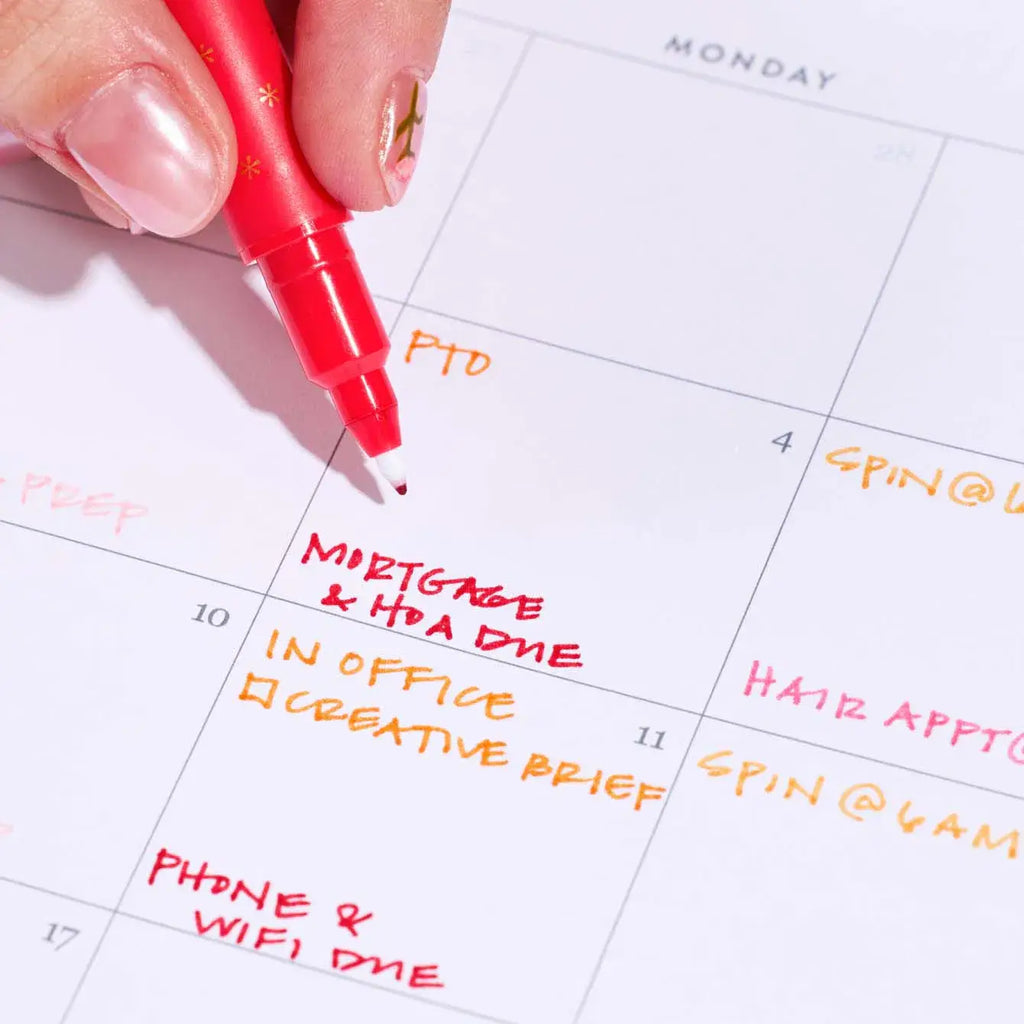 MONDAY
28
PTO
4
SPIN@6
PREP
MORTGAGE
& HOA DUE
10
IN OFFICE
CREATIVE BRIEF
11
HAIR APPT@
SPIN @ 6AM
PHONE &
WIFI DUE
17